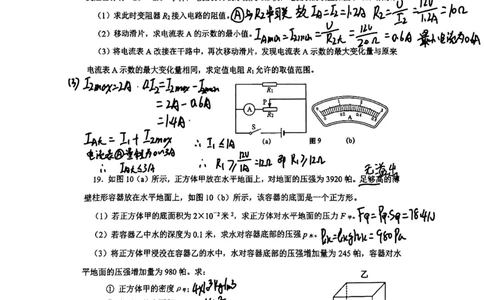 （1）求此时变阻器 R₂接入电路的阻值。Ⓐ与R₂串联 故 I_A=I₂=1.2A R₂=U/I₂=12V/1.2A=10Ω
（2）移动滑片，求电流表 A 的示数的最小值。I_Amin=I₂min=U/R₂大=12V/20Ω=0.6A
（3）将电流表 A 改接在干路中，再次移动滑片，发现电流表 A 示数的最大变化量与原来
电流表 A 示数的最大变化量相同，求定值电阻 R₁允许的取值范围。
(3) I₂max=2A · ΔI₂=I₂max-I₂min
=2A-0.6A
=1.4A
I_A大=I₁+I₂max
∴ I_A大≤3A
∴ I₁≤1A
∴ R₁≥12V/1A=12Ω 即 R₁≥12Ω
R₁
A
P
R₂
S
(a)
图 9
(b)
A
无溢出
19. 如图 10（a）所示，正方体甲放在水平地面上，对地面的压强为 3920 帕。足够高的薄
壁柱形容器放在水平地面上，如图 10（b）所示，该容器的底面是一个正方形。
（1）若正方体甲的底面积为 2×10⁻²米²，求正方体对水平地面的压力 F甲。F甲=P甲S甲=78.4N
（2）若容器乙中水的深度为 0.1 米，求水对容器底部的压强 p水。P水=ρ水gh水=980Pa
（3）将正方体甲浸没在容器乙的水中，水对容器底部的压强增加量为 245 帕，容器对水
平地面的压强增加量为 980 帕。求：
① 正方体甲的密度 ρ甲；4×10³kg/m³
乙